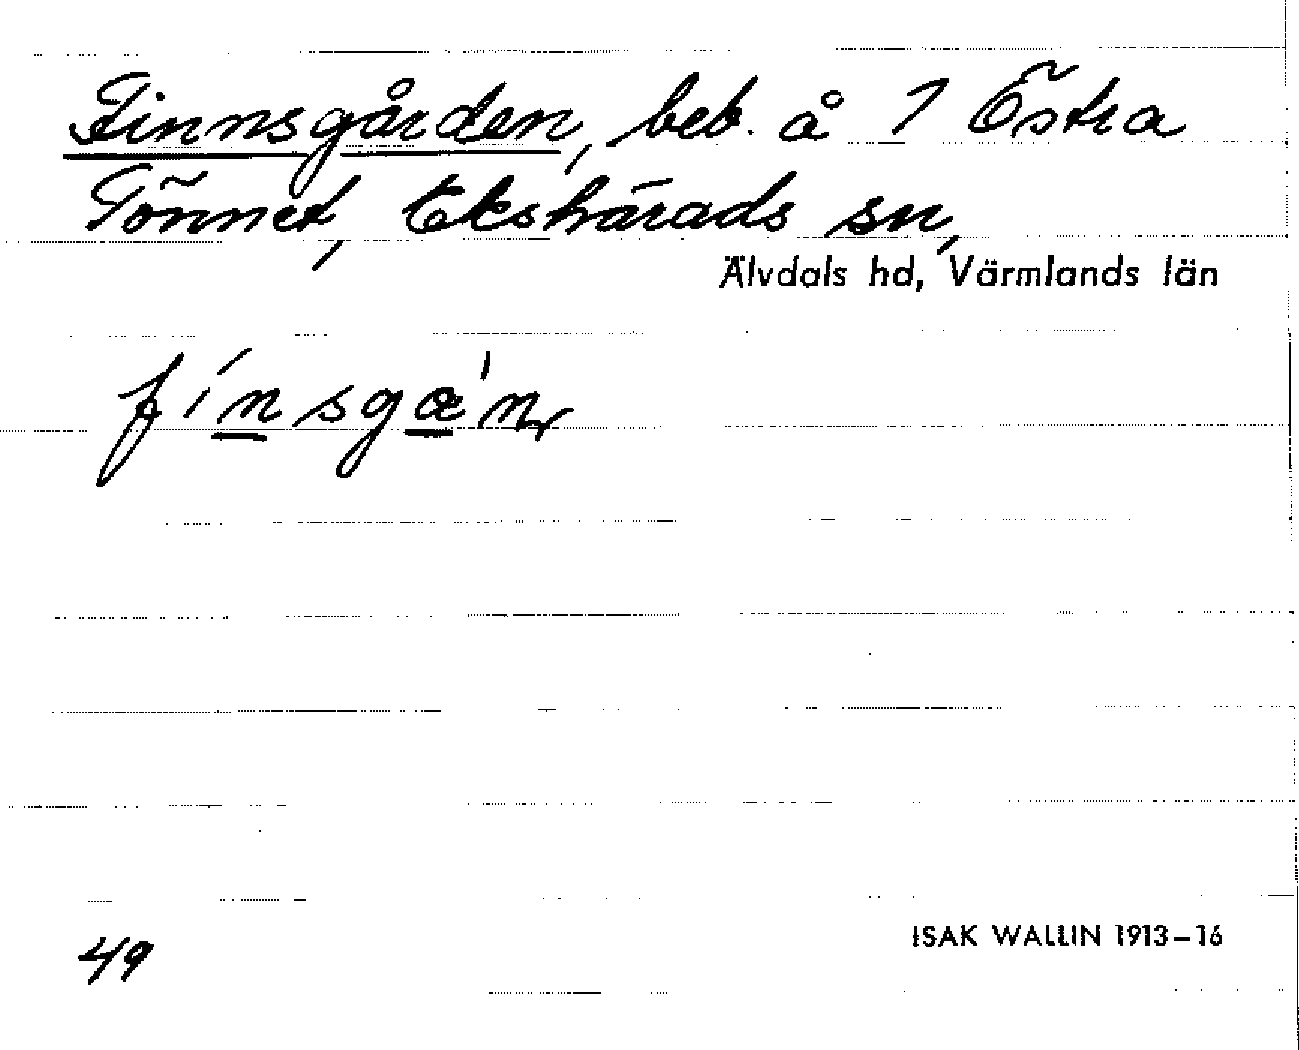 Finnsgården, beb. å 1 Östra
Tönnet, Ekshärads sn,
Älvdals hd, Värmlands län
fínsgæ'n
49
ISAK WALLIN 1913–16